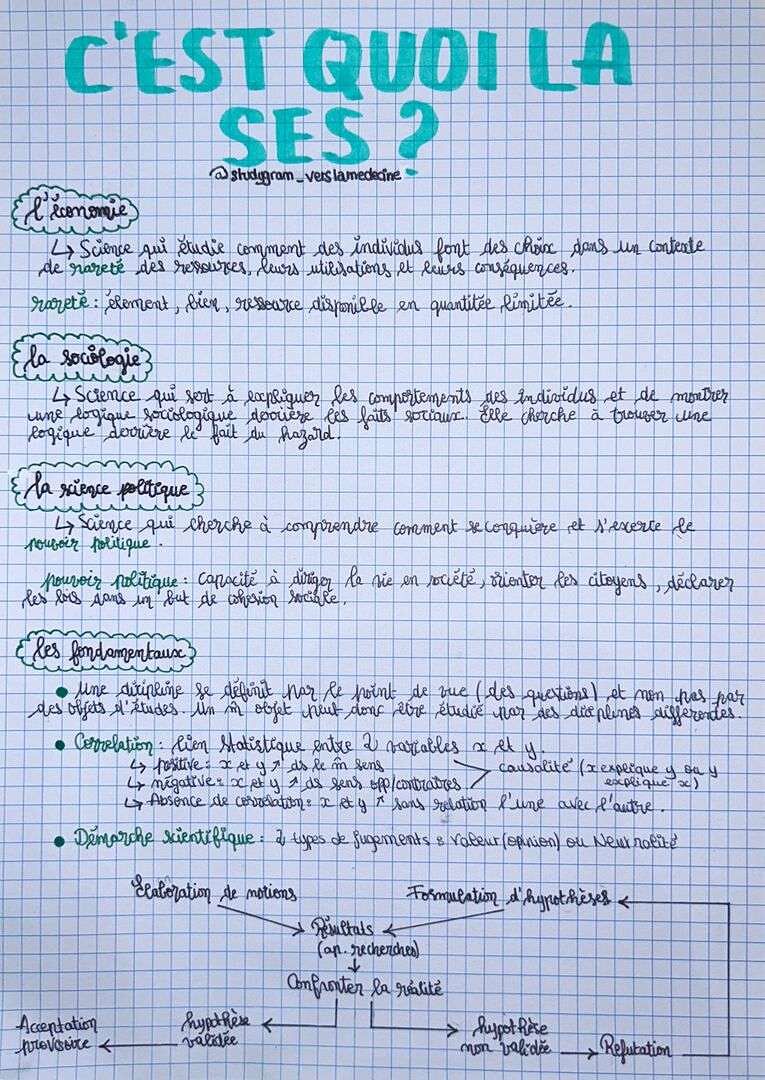 C'EST QUOI LA
SES ?
@studygram_verslamedecine
l'économie
↳ Science qui étudie comment des individus font des choix dans un contexte
de rareté des ressources, leurs utilisations et leurs conséquences.
rareté : élement, bien, ressource disponible en quantitée limitée.
la sociologie
↳ Science qui sert à expliquer les comportements des individus et de montrer
une logique sociologique derrière les faits sociaux. Elle cherche à trouver une
logique derrière le fait du hazard.
la science politique
↳ Science qui cherche à comprendre comment se conquière et s'exerce le
pouvoir politique.
pouvoir politique : capacité à diriger la vie en société, orienter les citoyens, déclarer
les lois dans un but de cohésion sociale.
les fondamentaux
• Une disipline se définit par le point de vue (des questions) et non pas par
des objets d'études. Un m̂ objet peut donc être étudié par des disciplines différentes.
• Correlation : lien statistique entre 2 variables x et y.
↳ positive : x et y ↗ ds le m̂ sens
↳ négative : x et y ↗ ds sens opp/contraires
causalité (x explique y ou y
explique x)
↳ Absence de correlation : x et y ↗ sans relation l'une avec l'autre.
• Démarche scientifique : 2 types de jugements : valeur (opinion) ou Neutralité
Elaboration de notions
Formulation d'hypothèses
Résultats
(ap. recherches)
Confronter la réalité
Acceptation
provisoire
hypothèse
validée
hypothèse
non validée
Refutation